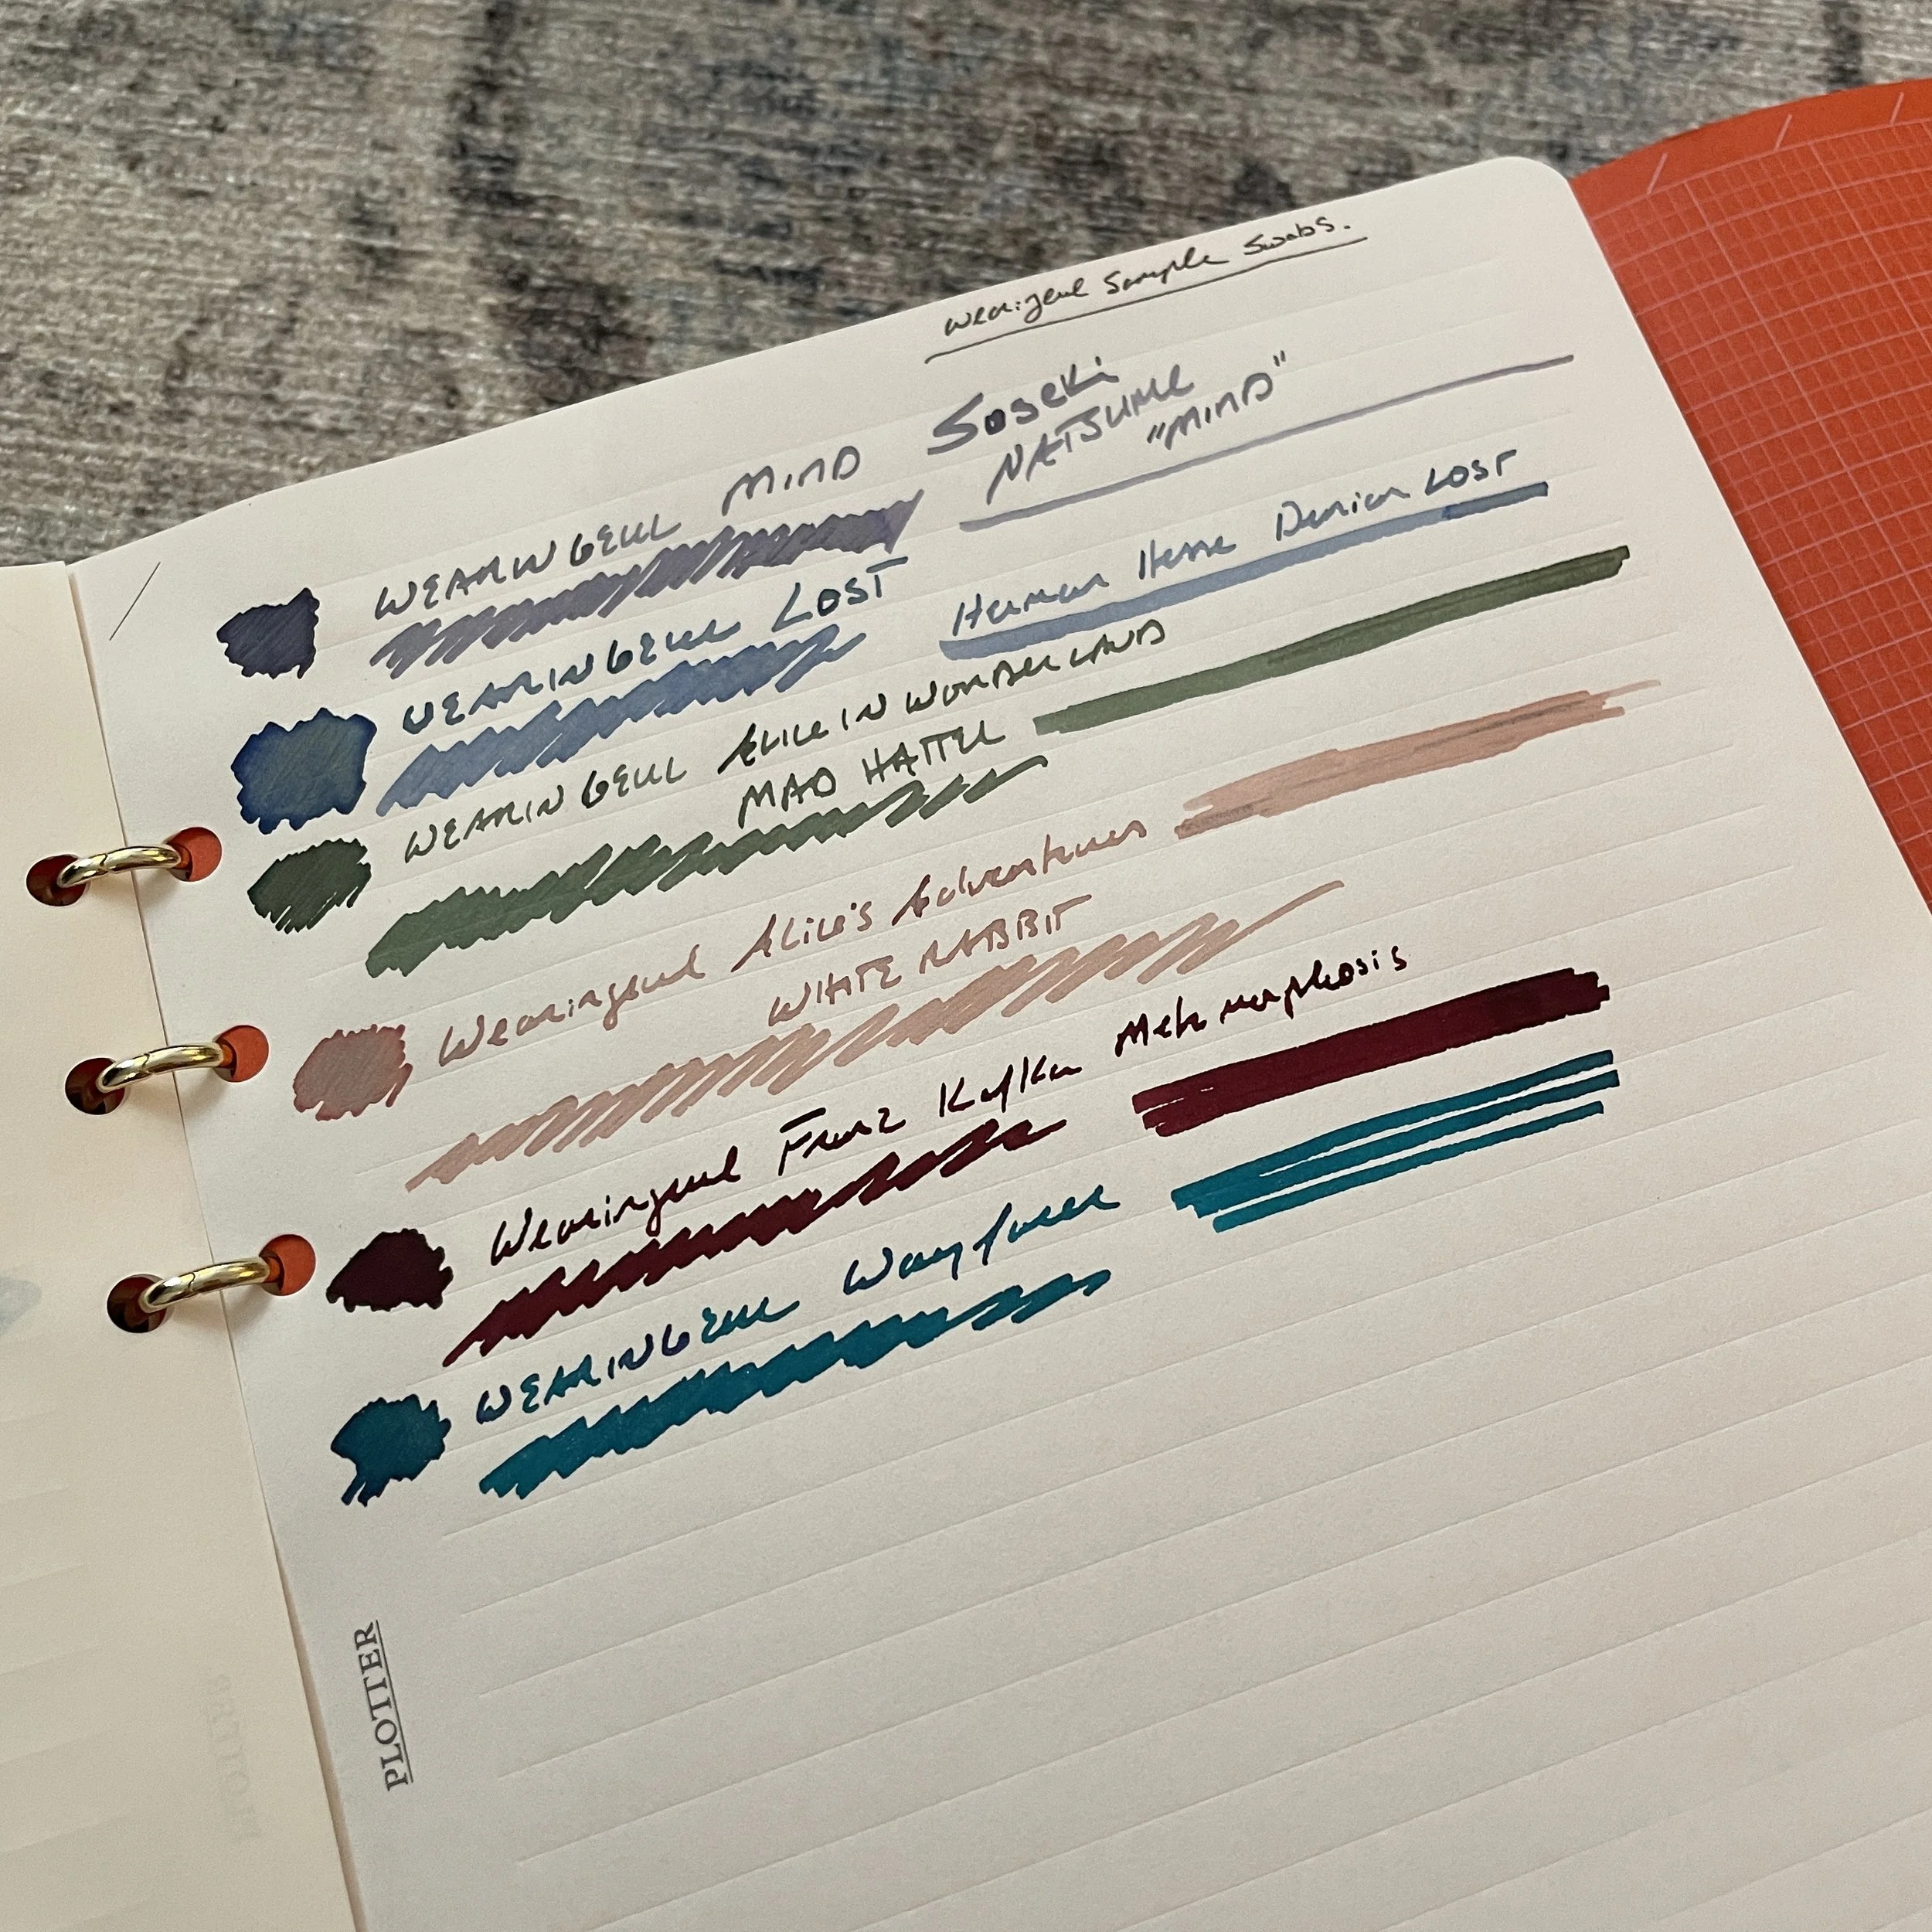 Wearingeul Sample Swabs.
WEARINGEUL MIND Soseki
NATSUME
"MIND"
WEARINGEUL LOST Herman Hesse Demian LOST
WEARINGEUL ALICE IN WONDERLAND
MAD HATTER
Wearingeul Alice's Adventures
WHITE RABBIT
Wearingeul Franz Kafka Metamorphosis
WEARINGEUL Wayfarer
PLOTTER